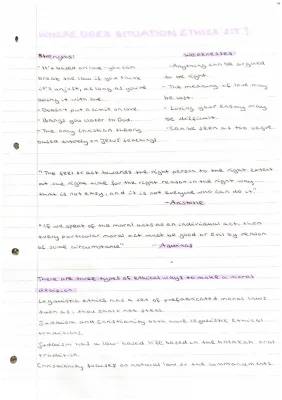 WHERE DOES SITUATION ETHICS SIT?
Strengths: Weaknesses:
- It's based on love - you can
break the law if you think
it's unjust, as long as you're
doing it with love.
- Doesn't put a limit on love.
- Brings you closer to God.
- The only Christian theory
based entirely on Jesus' teachings
- Anything can be argued
to be right.
- The meaning of love may
be lost.
- Loving your enemy may
be difficult.
- Can be seen as too vague.
"The feel or act towards the right person to the right extent
at the right time for the right reason in the right way -
that is not easy, and it is not everyone who can do it"
- Aristotle
"If we speak of the moral act as an individual act, then
every particular moral act must be good or evil by reason
of some circumstance" - Aquinas
There are three types of ethical ways to make a moral
decision:
Legalistic ethics has a set of prefabricated moral laws
such as, thou shalt not steal.
Judaism and Christianity both have legalistic ethical
traditions.
Judaism has a law-based life based in the halakah oral
tradition.
Christianity focuses on natural law or the commandments.